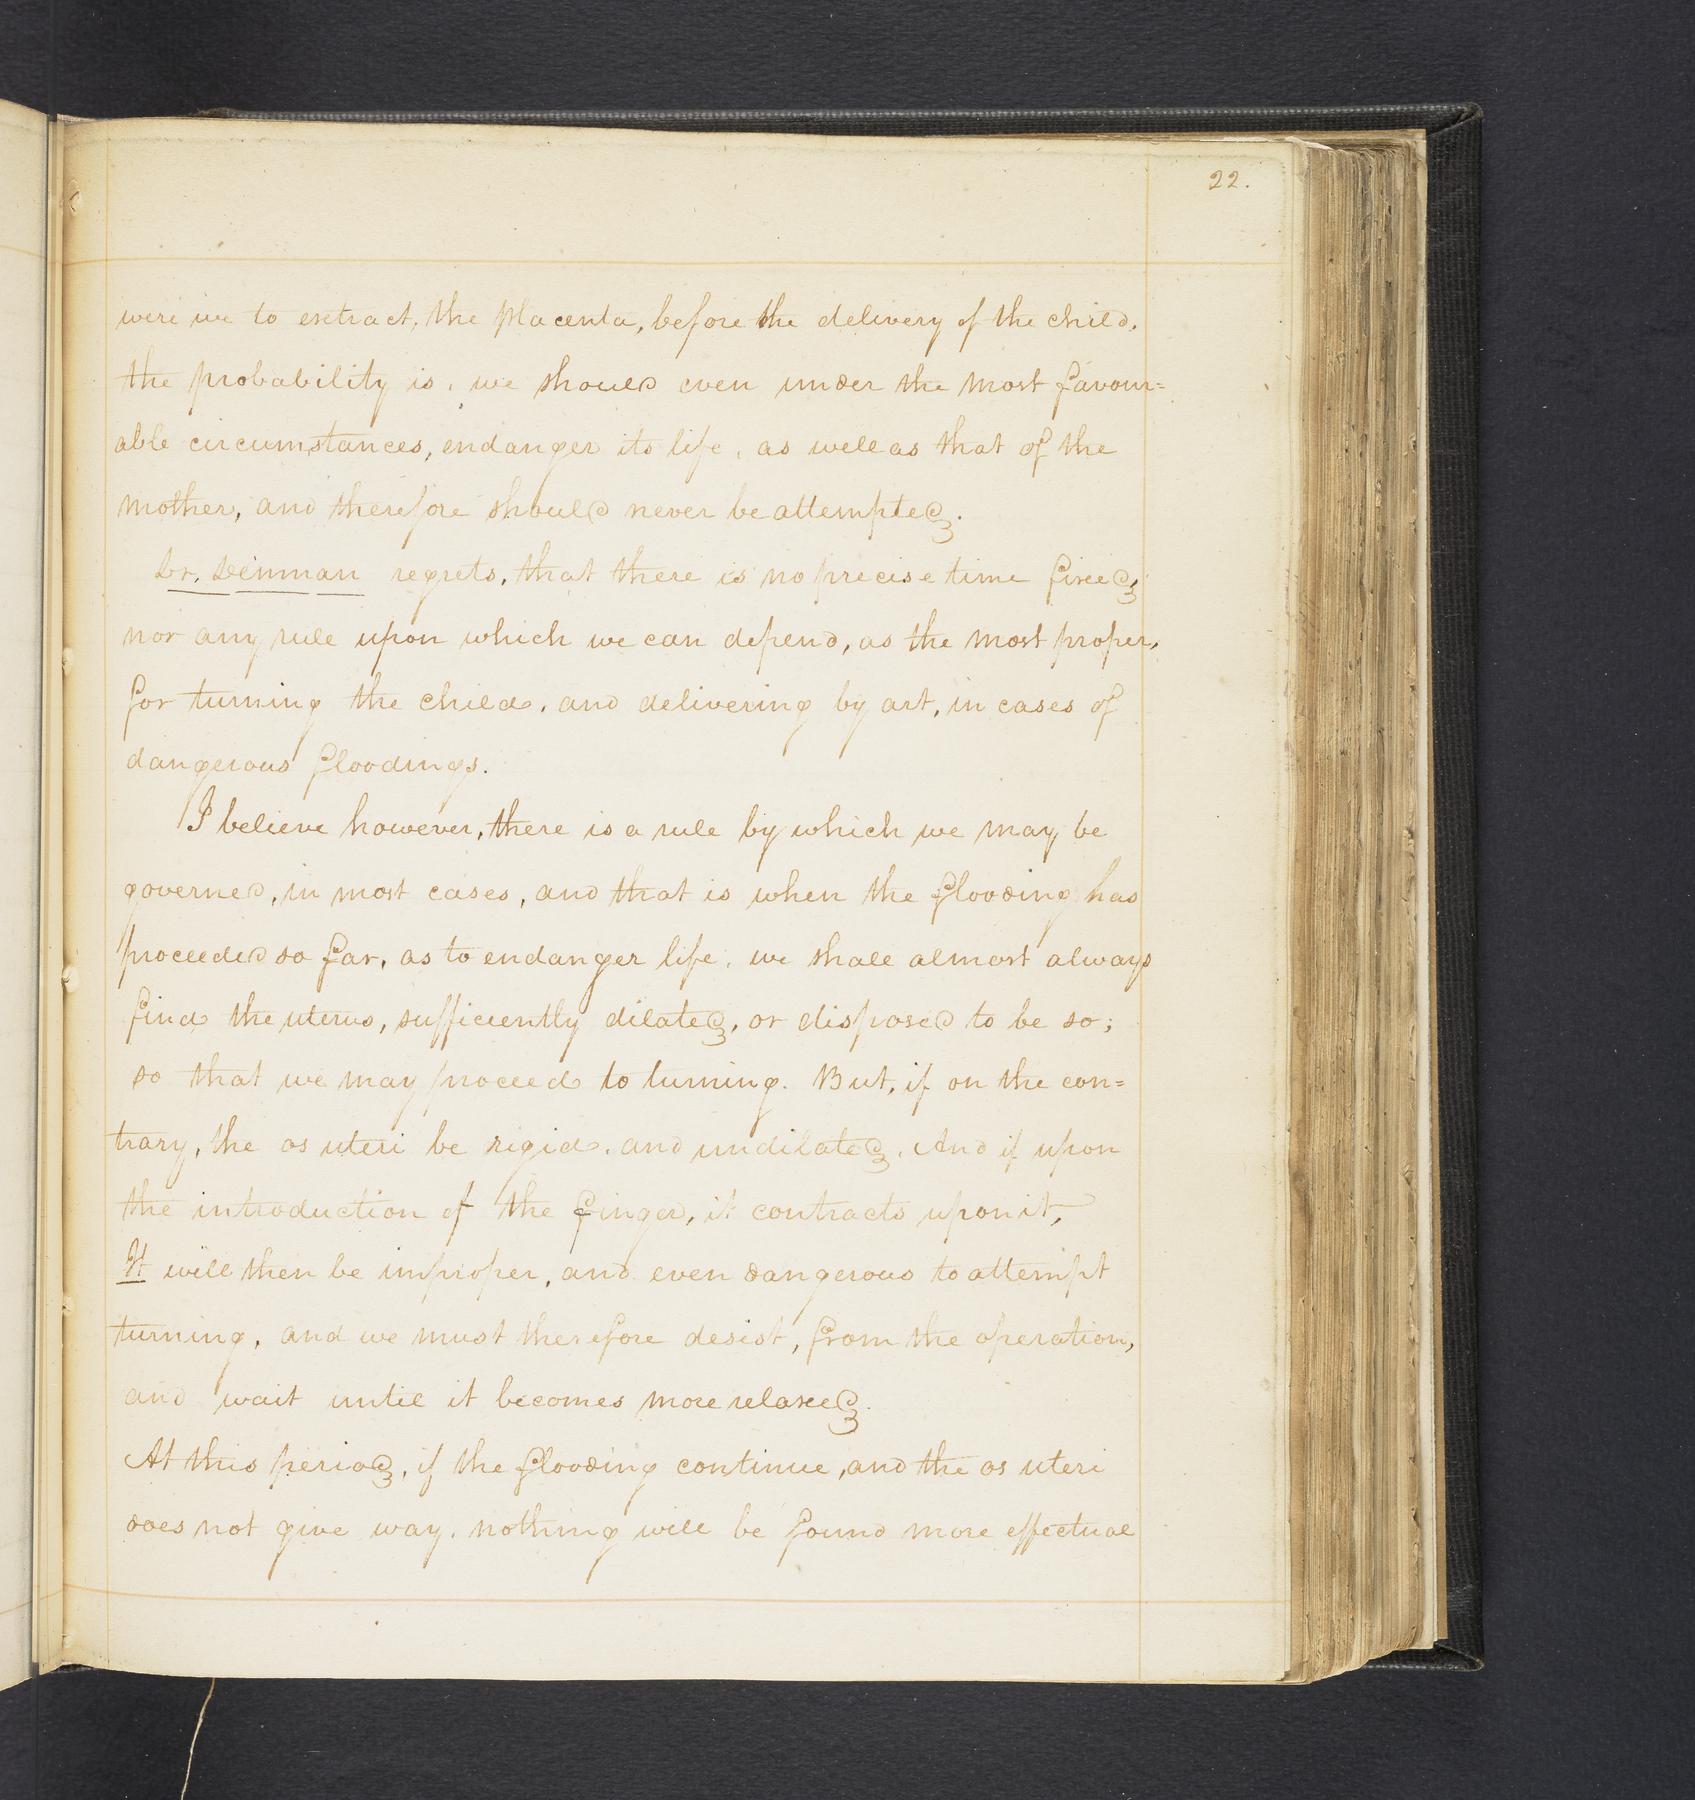 22.
were we to extract, the placenta, before the delivery of the child,
the probability is, we should even under the most favour=
able circumstances, endanger its life, as well as that of the
mother, and therefore should never be attempted.
Dr. Denman regrets, that there is no precise time fixed,
nor any rule upon which we can depend, as the most proper,
for turning the child, and delivering by art, in cases of
dangerous floodings.
I believe however, there is a rule by which we may be
governed, in most cases, and that is when the flooding has
proceeded so far, as to endanger life, we shall almost always
find the uterus, sufficiently dilated, or disposed to be so;
so that we may proceed to turning. But, if on the con=
trary, the os uteri be rigid, and undilated, And if upon
the introduction of the finger, it contracts upon it,
It will then be improper, and even dangerous to attempt
turning, and we must therefore desist, from the operation,
and wait until it becomes more relaxed.
At this period, if the flooding continue, and the os uteri
does not give way, nothing will be found more effectual